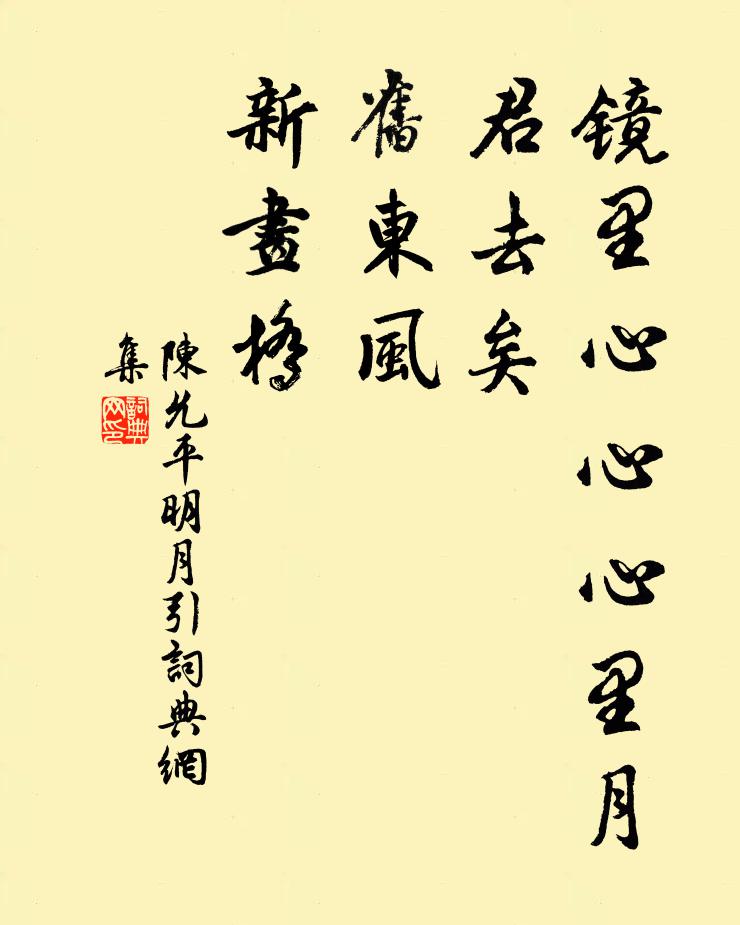 镜里心心心里月
君去矣
舊東風
新畫橋
陳允平明月引詞典網
集
詞典
网印